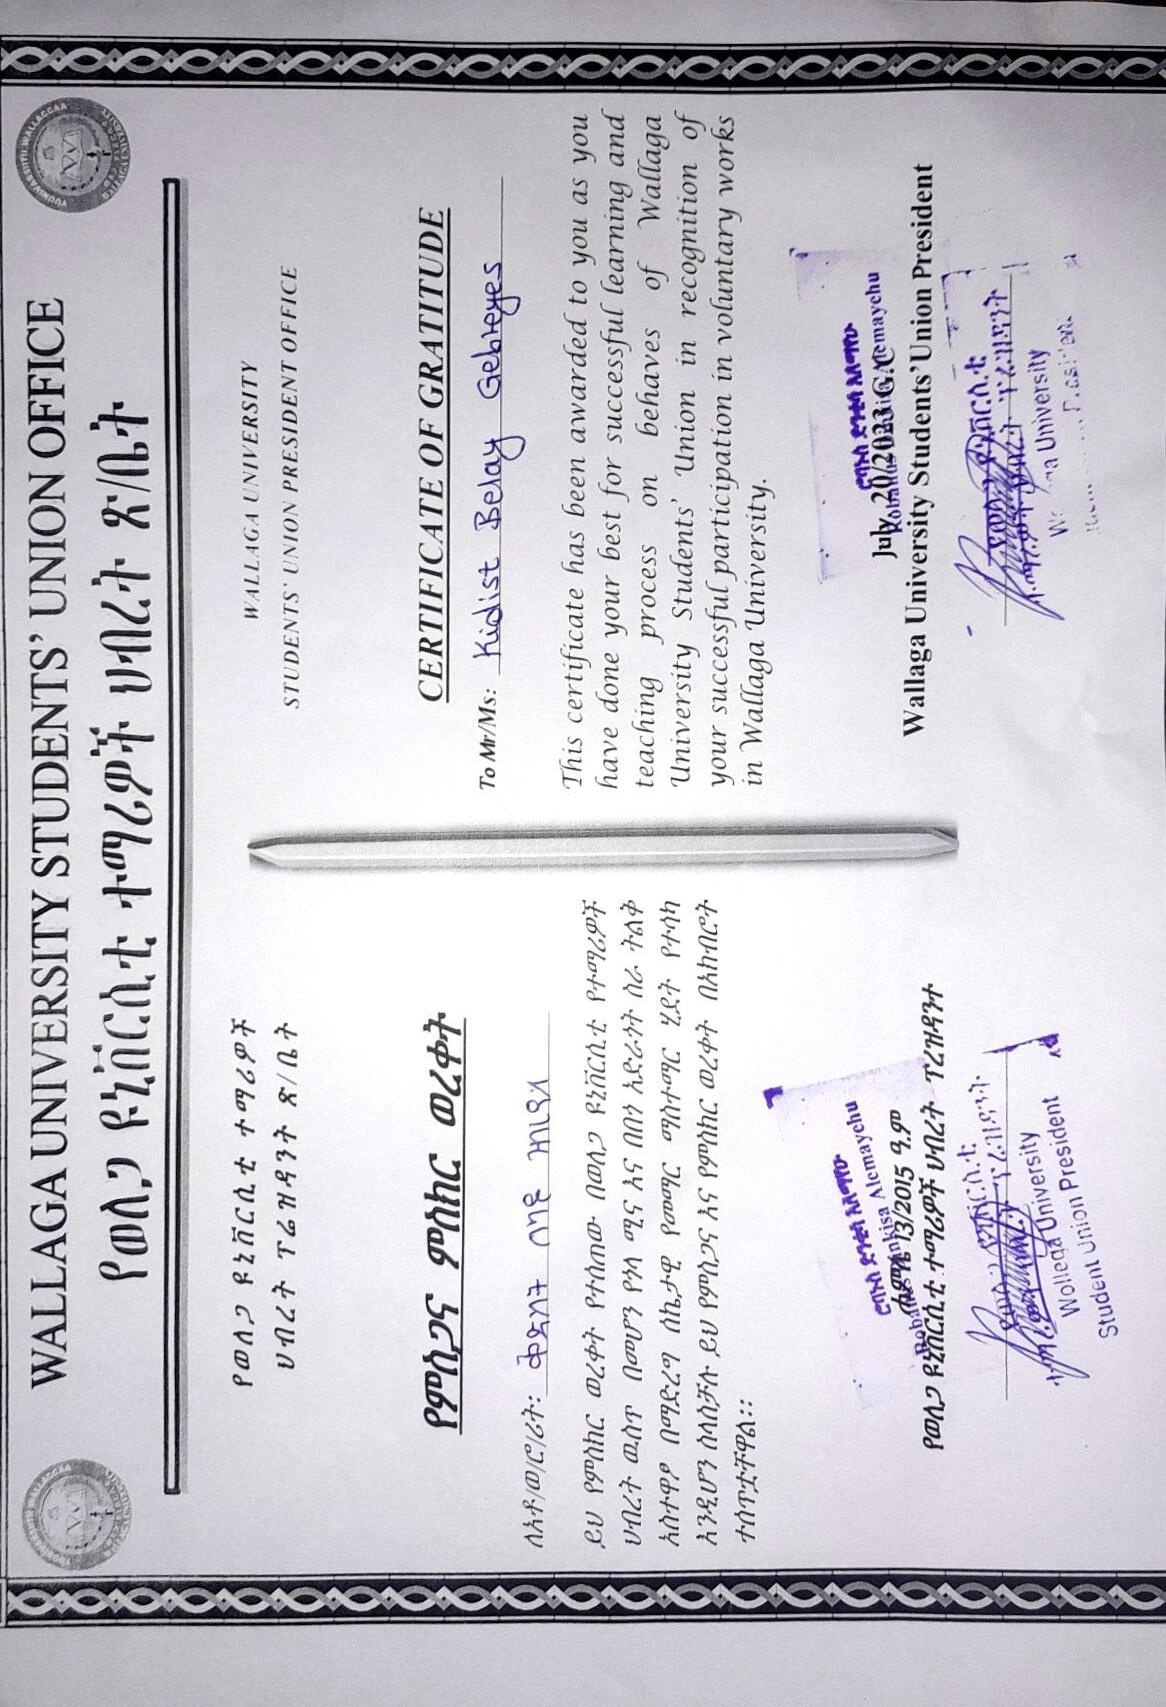 WALLAGA UNIVERSITY STUDENTS' UNION OFFICE
የወለጋ ዩኒቨርሲቲ ተማሪዎች ህብረት ጽ/ቤት
የወለጋ ዩኒቨርሲቲ ተማሪዎች
ህብረት ፕሬዝዳንት ጽ/ቤት
የምስጋና ምስክር ወረቀት
ለአቶ/ወ/ሮ/ሪት: ቅድስት በላይ
ይህ የምስክር ወረቀት የተሰጠው በወለጋ ዩኒቨርሲቲ የተማሪዎች
ህብረት ዉስጥ በመሆን የጎላ ሚና እና በጎ አድራጎት ስራ ትልቅ
አስተዋፆ በማድረግ ስኬታዊ የመማር ማስተማር ሂደት የተሳካ
እንዲሆን ስላስቻሉ ይህ የምስጋና እና የምስክር ወረቀት በአክብሮት
ተሰጥቷቸዋል፡፡
ሮባለ ድንቂሳ አለማየሁ
Alemaychu
ሐምሌ 13/2015 ዓ.ም
የወለጋ ዩኒቨርሲቲ ተማሪዎች ህብረት ፕሬዝዳንት
Wollega University
Student Union President
WALLAGA UNIVERSITY
STUDENTS' UNION PRESIDENT OFFICE
CERTIFICATE OF GRATITUDE
To Mr/Ms: Kidist Belay Gebreyes
This certificate has been awarded to you as you
have done your best for successful learning and
teaching process on behaves of Wallaga
University Students' Union in recognition of
your successful participation in voluntary works
in Wallaga University.
July 20/2023 G.C
Wallaga University Students' Union President
University